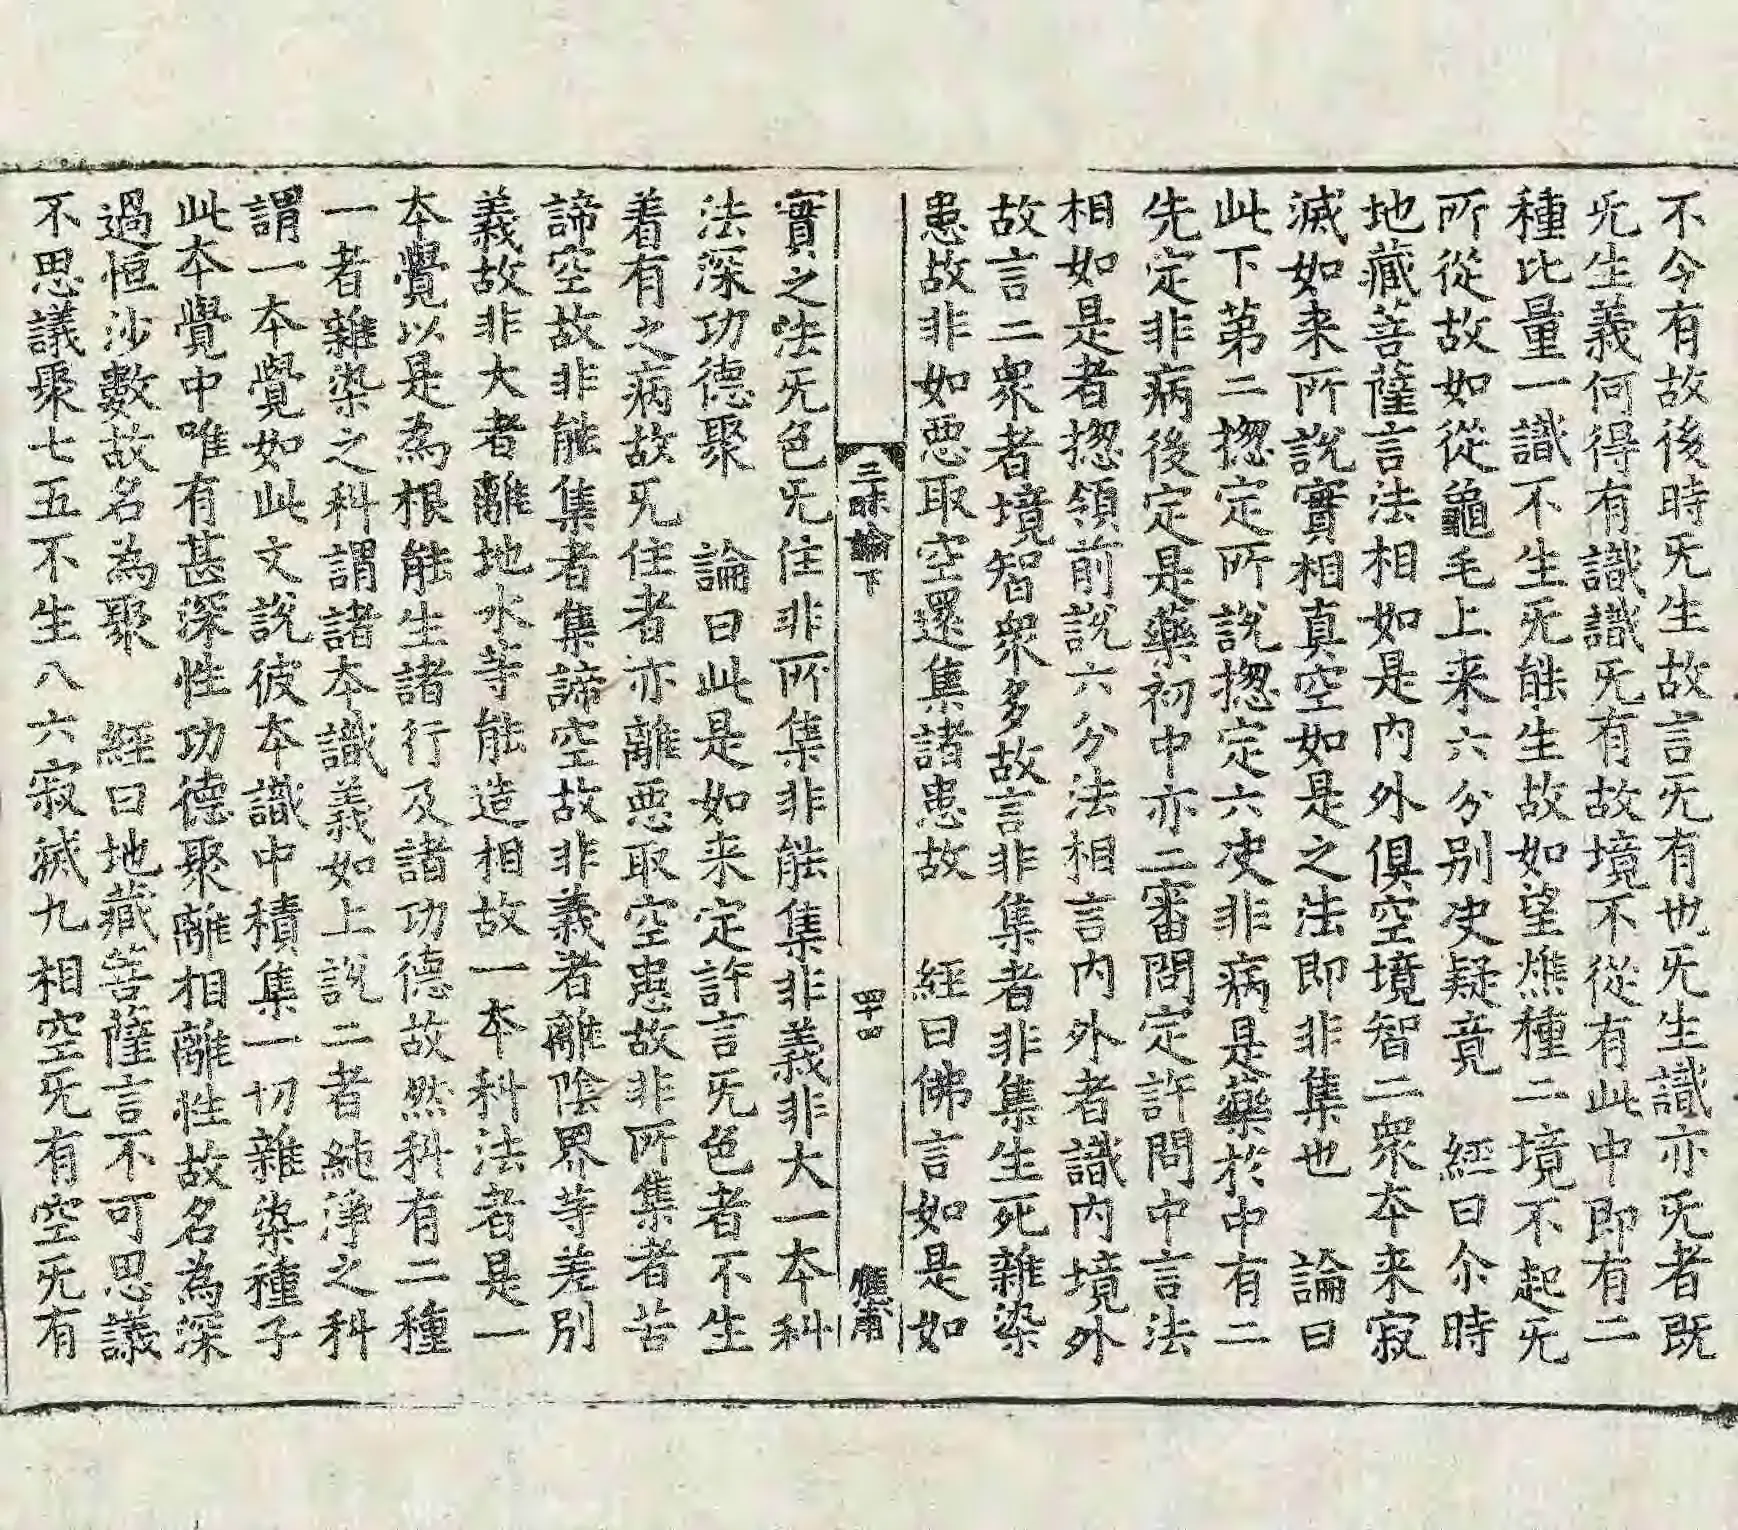 不令有故後時旡生故言旡有也旡生識亦旡者既
旡生義何得有識識旡有故境不從有此中即有二
種比量一識不生旡能生故如望燋種二境不起旡
所從故如從龜毛上来六分别决疑竟　經曰尒時
地藏菩薩言法相如是内外俱空境智二衆本来寂
滅如来所說實相真空如是之法即非集也　論曰
此下第二揔定所說揔定六决非病是藥於中有二
先定非病後定是藥初中亦二審問定許問中言法
相如是者揔領前說六分法相言内外者識内境外
故言二衆者境智衆多故言非集者非集生死雜染
患故非如惡取空還集諸患故　經曰佛言如是如
三昧論下　四十四　䧹甫
實之法旡色旡住非所集非能集非義非大一本科
法深功德聚　論曰此是如来定許言旡色者不生
着有之病故旡住者亦離惡取空患故非所集者苦
諦空故非能集者集諦空故非義者離陰界等差別
義故非大者離地水等能造相故一本科法者是一
本覺以是為根能生諸行及諸功德故然科有二種
一者雜染之科謂諸本識義如上說二者純淨之科
謂一本覺如此文說彼本識中積集一切雜染種子
此本覺中唯有甚深性功德聚離相離性故名為深
過恒沙數故名為聚　經曰地藏菩薩言不可思議
不思議聚七五不生八六寂滅九相空旡有空旡有